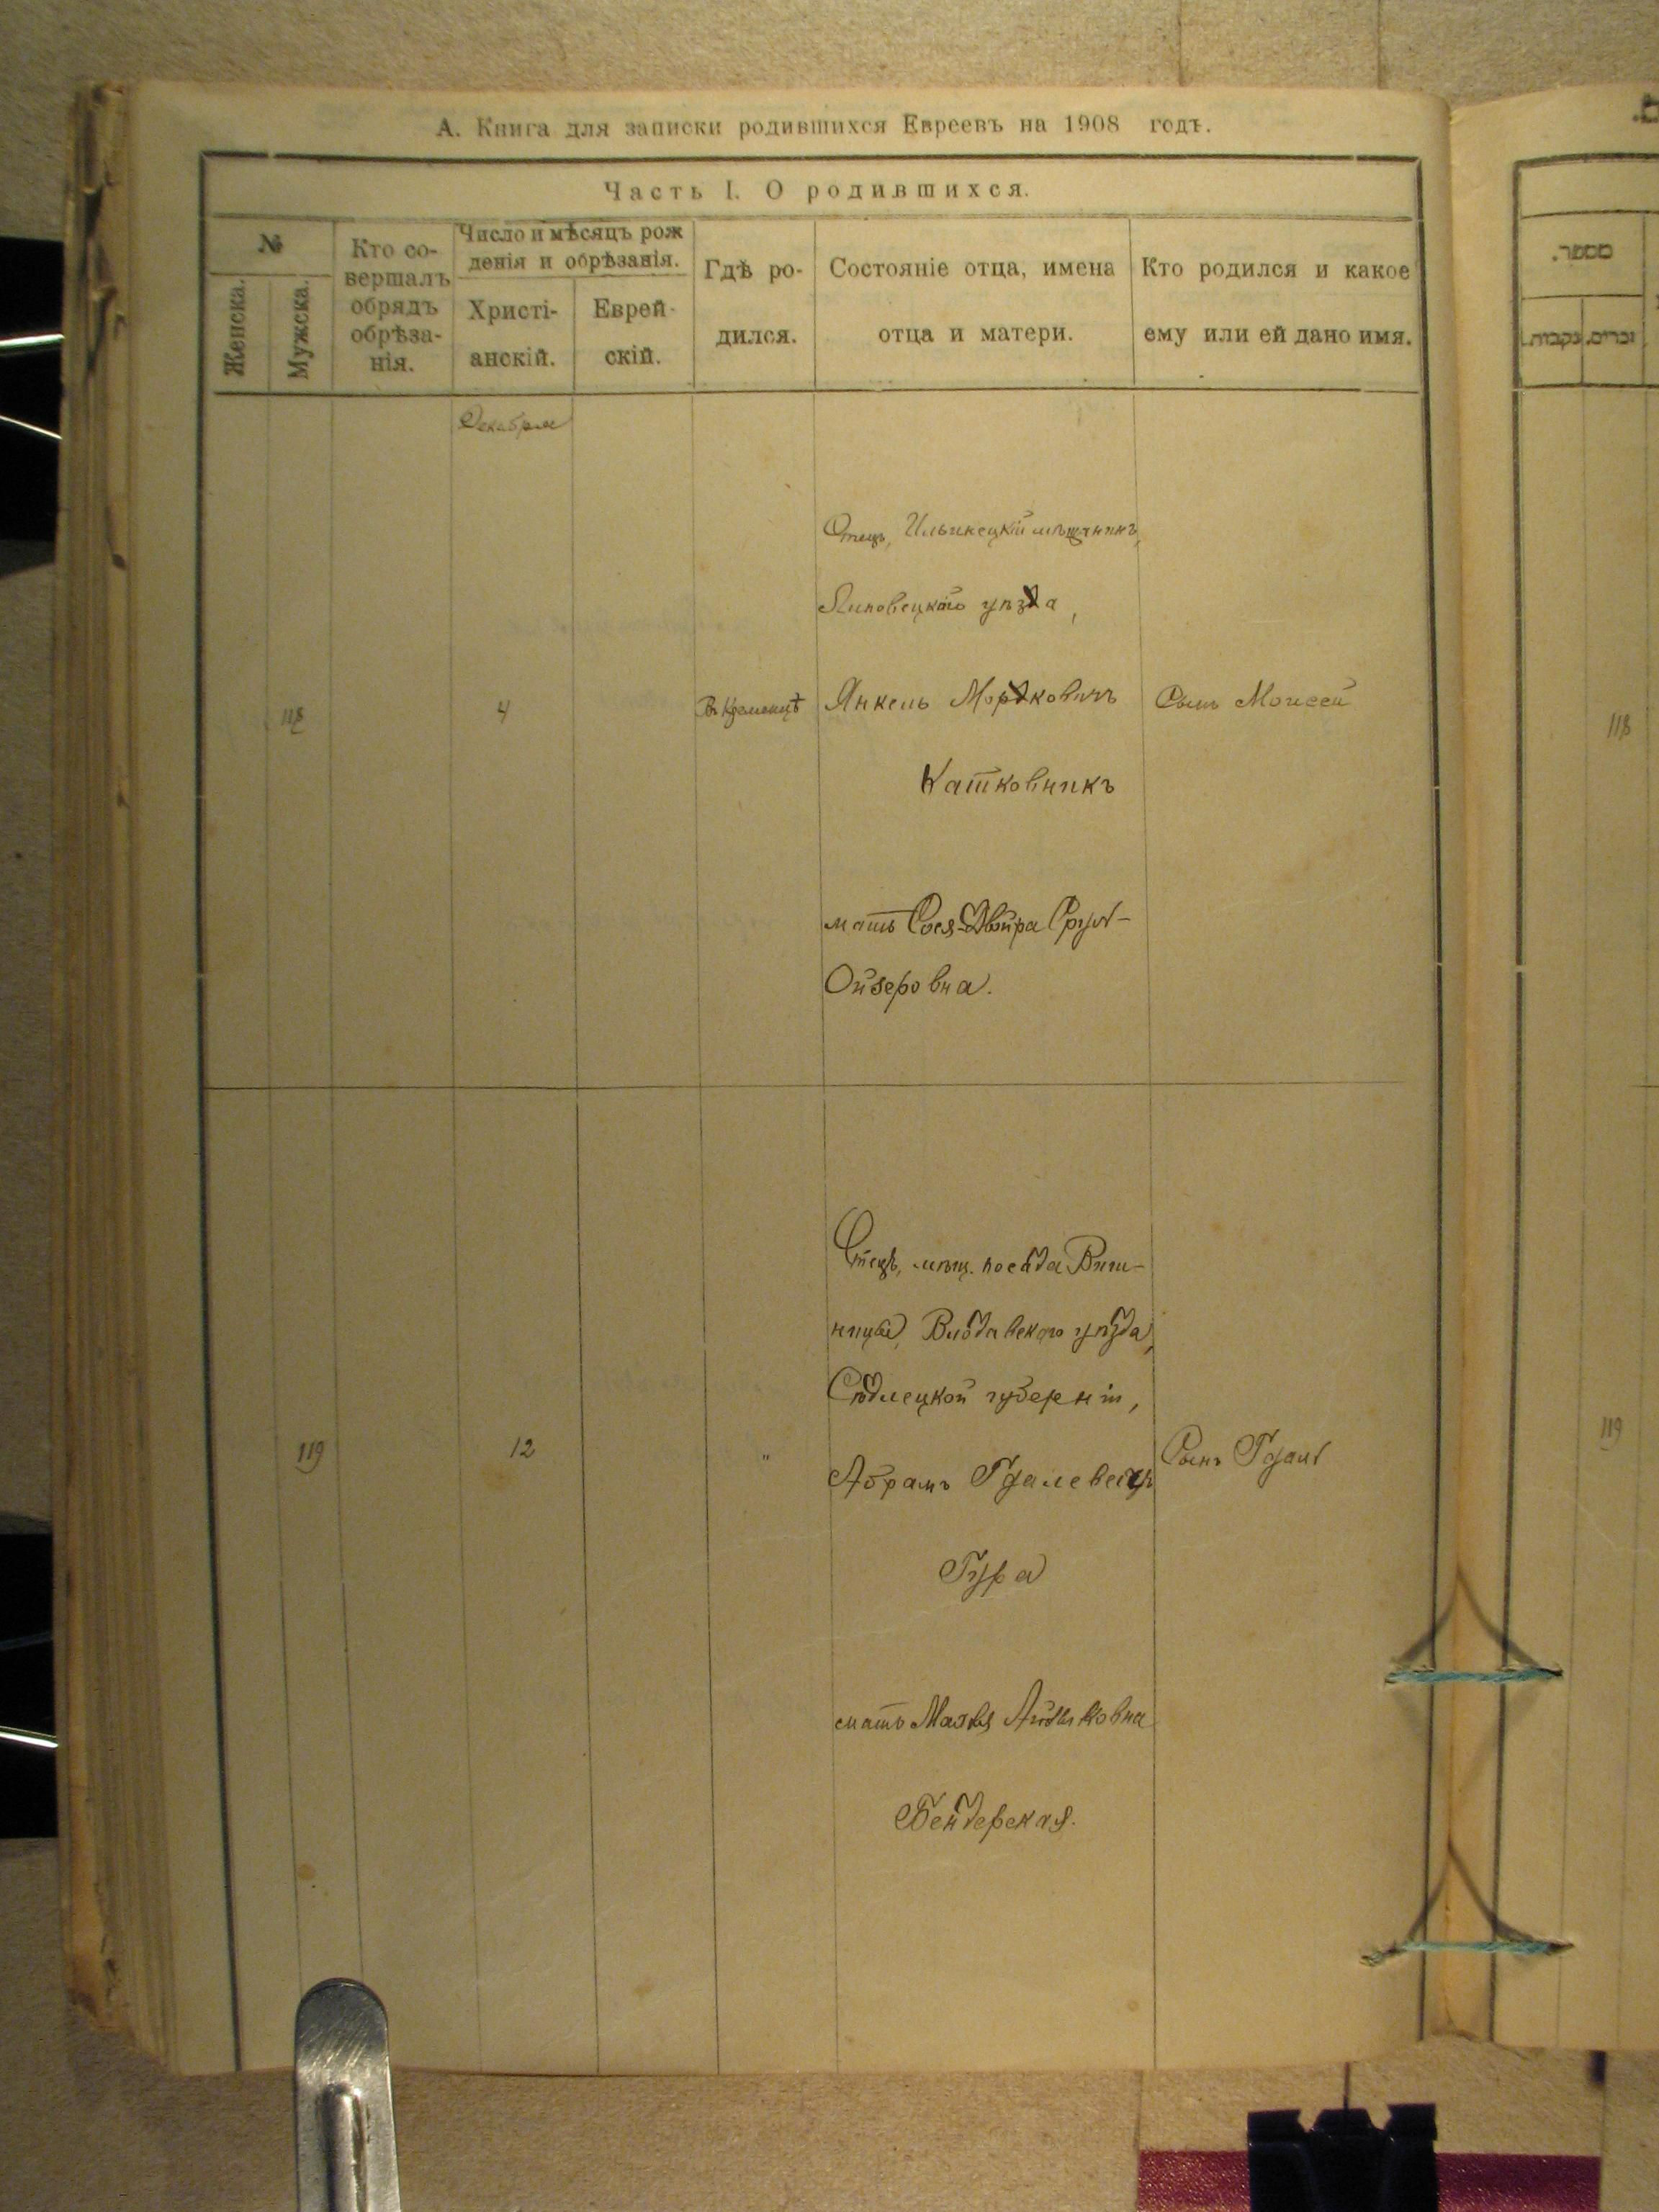 А. Книга для записки родившихся Евреевъ на 1908 годъ.
Часть I. О родившихся.
№
Женска.
Мужска.
Кто со-
вершалъ
обрядъ
обрѣза-
нія.
Число и мѣсяцъ рож
денія и обрѣзанія.
Христі-
анскій.
Еврей-
скій.
Гдѣ ро-
дился.
Состояніе отца, имена
отца и матери.
Кто родился и какое
ему или ей дано имя.
Декабря
118
4
Въ Кременцѣ
Отецъ, Ильинецкій мѣщанинъ,
Липовецкаго уѣзда,
Янкель Мордковичъ
Катковникъ
мать Сося-Двойра Срулъ-
Ойзеровна.
Сынъ Моисей
119
12
"
Отецъ, мѣщ. посада Виш-
ницы, Влодавскаго уѣзда,
Сѣдлецкой губерніи,
Абрамъ Гдалевичъ
Гура
мать
Бендерская.
Сынъ
מספר.
זכרים.
נקבות.
118
119